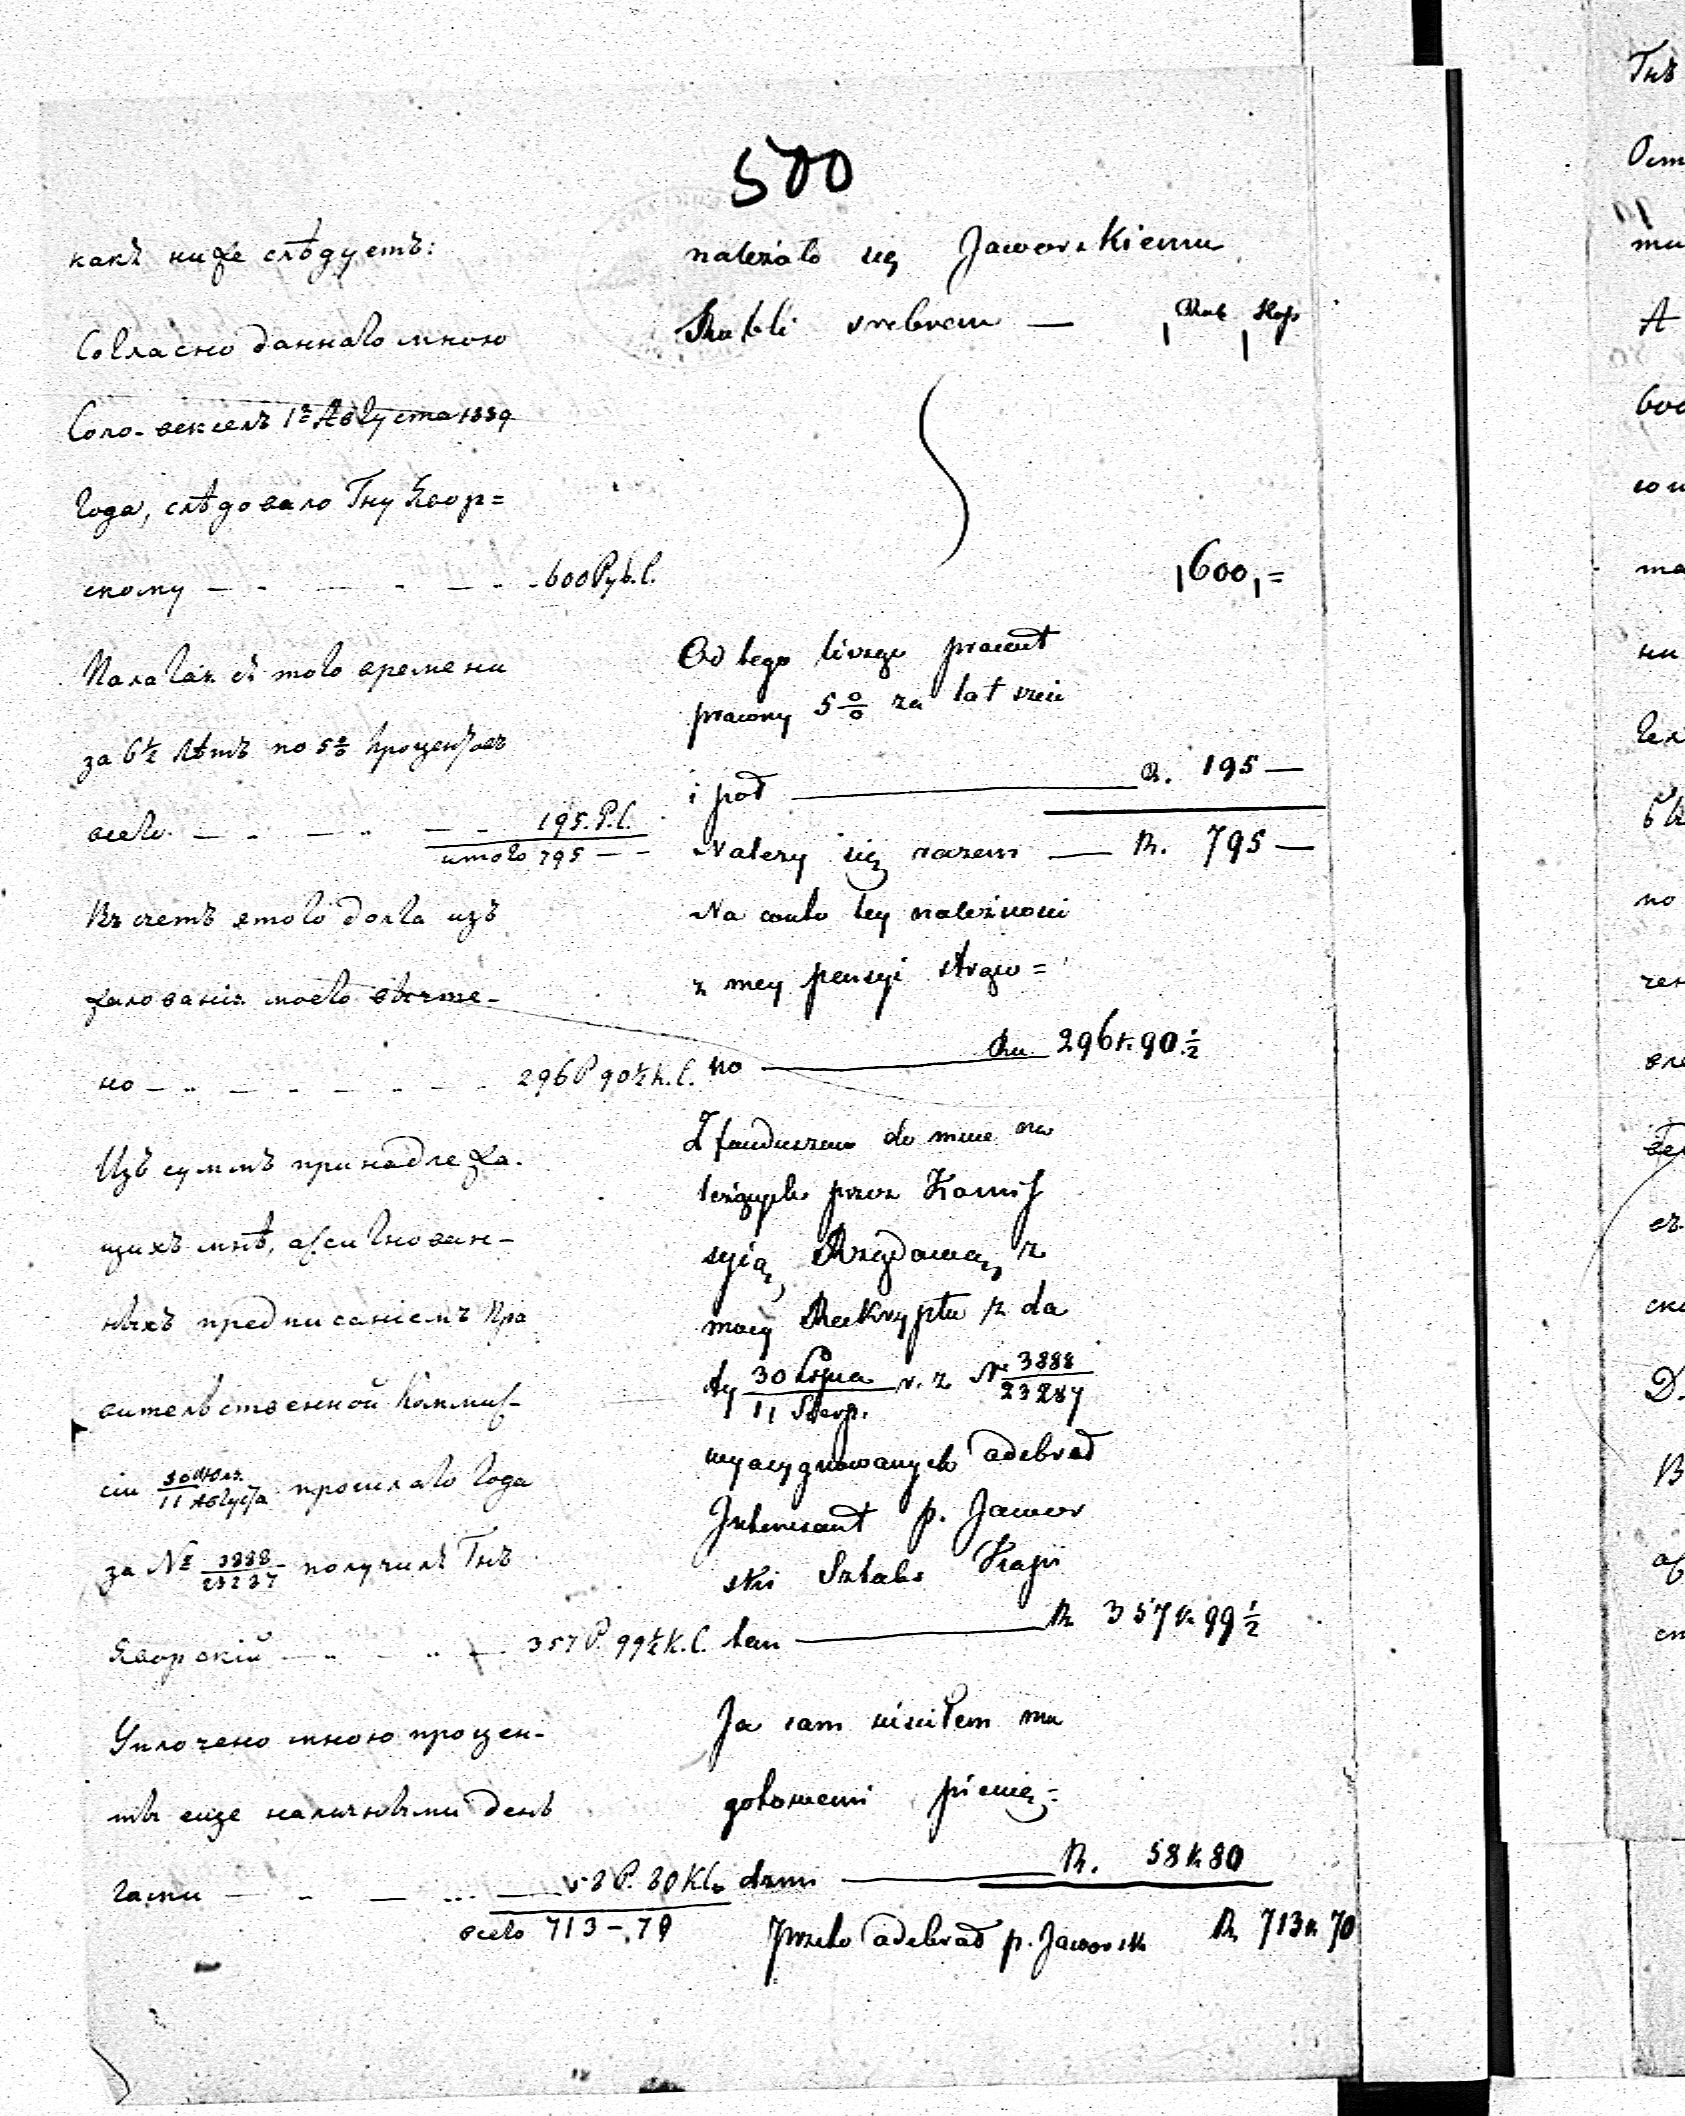 500
какъ ниже слѣдуетъ:
Согласно даннаго мною
Соло-векселъ 1го Августа 1839
года, слѣдовало Гну Явор=
скому — - — - — - 600 Руб. С.
Палагая съ того времени
за 6½ лѣтъ по 5% процентовъ
всего — - — - — - 195. Р. С.
итого 795 — -
Въ счетъ этого долга изъ
жалованія моего вычте-
но - - - - - - - 296 Р 90½ к. С.
Изъ суммъ принадлежа-
щихъ мнѣ, ассигнован-
ныхъ предписаніемъ Пра
вительственной Коммис-
сіи 30 Юля / 11 Августа прошлаго года
за № 3888 / 23287 получилъ Гнъ
Яворскій - - - - 357 Р. 99½ К. С.
Уплочено мною процен-
ты еще наличными день
гами - - - - 58 Р. 80 К С.
всего 713 - 70
należało się Jaworskiemu
Rubli srebrem — Rub Kop
600 =
Od tego liczęc procent
prawny 5% za lat sześć
i pół — R. 195 —
Należy się razem — R. 795 —
Na conto tey należności
z mey pensyi strąco=
no — Ru 296 k. 90 ½
Z funduszów do mnie na
leżących przez Kommis
syią Rządową, z
mocy Reskryptu z da
ty 30 Lipca / 11 Sierp. r. z № 3888 / 23287
wyasygnowanych odebrał
Interesant p. Jawor
ski Sztabs Kapi
tan — R 357 k. 99 ½
Ja sam uiściłem mu
gotowemi pienię=
dzmi — R. 58 k 80
Przeto odebrał p. Jaworsk R. 713 k 70